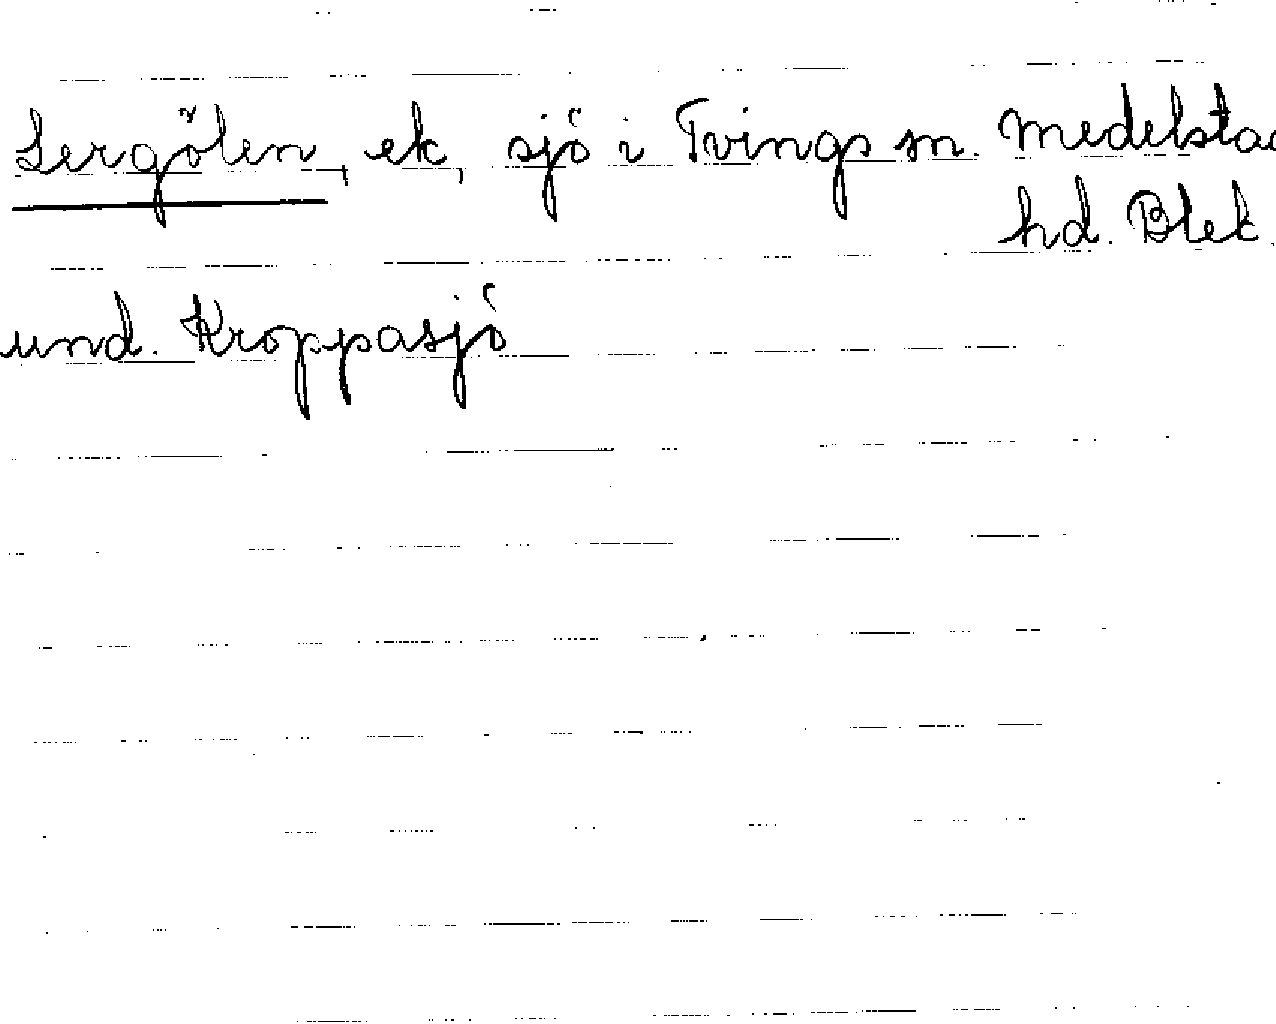 Lergölen, ek, sjö i Tvings sn. Medelsta
hd. Blek.
und. Kroppasjö